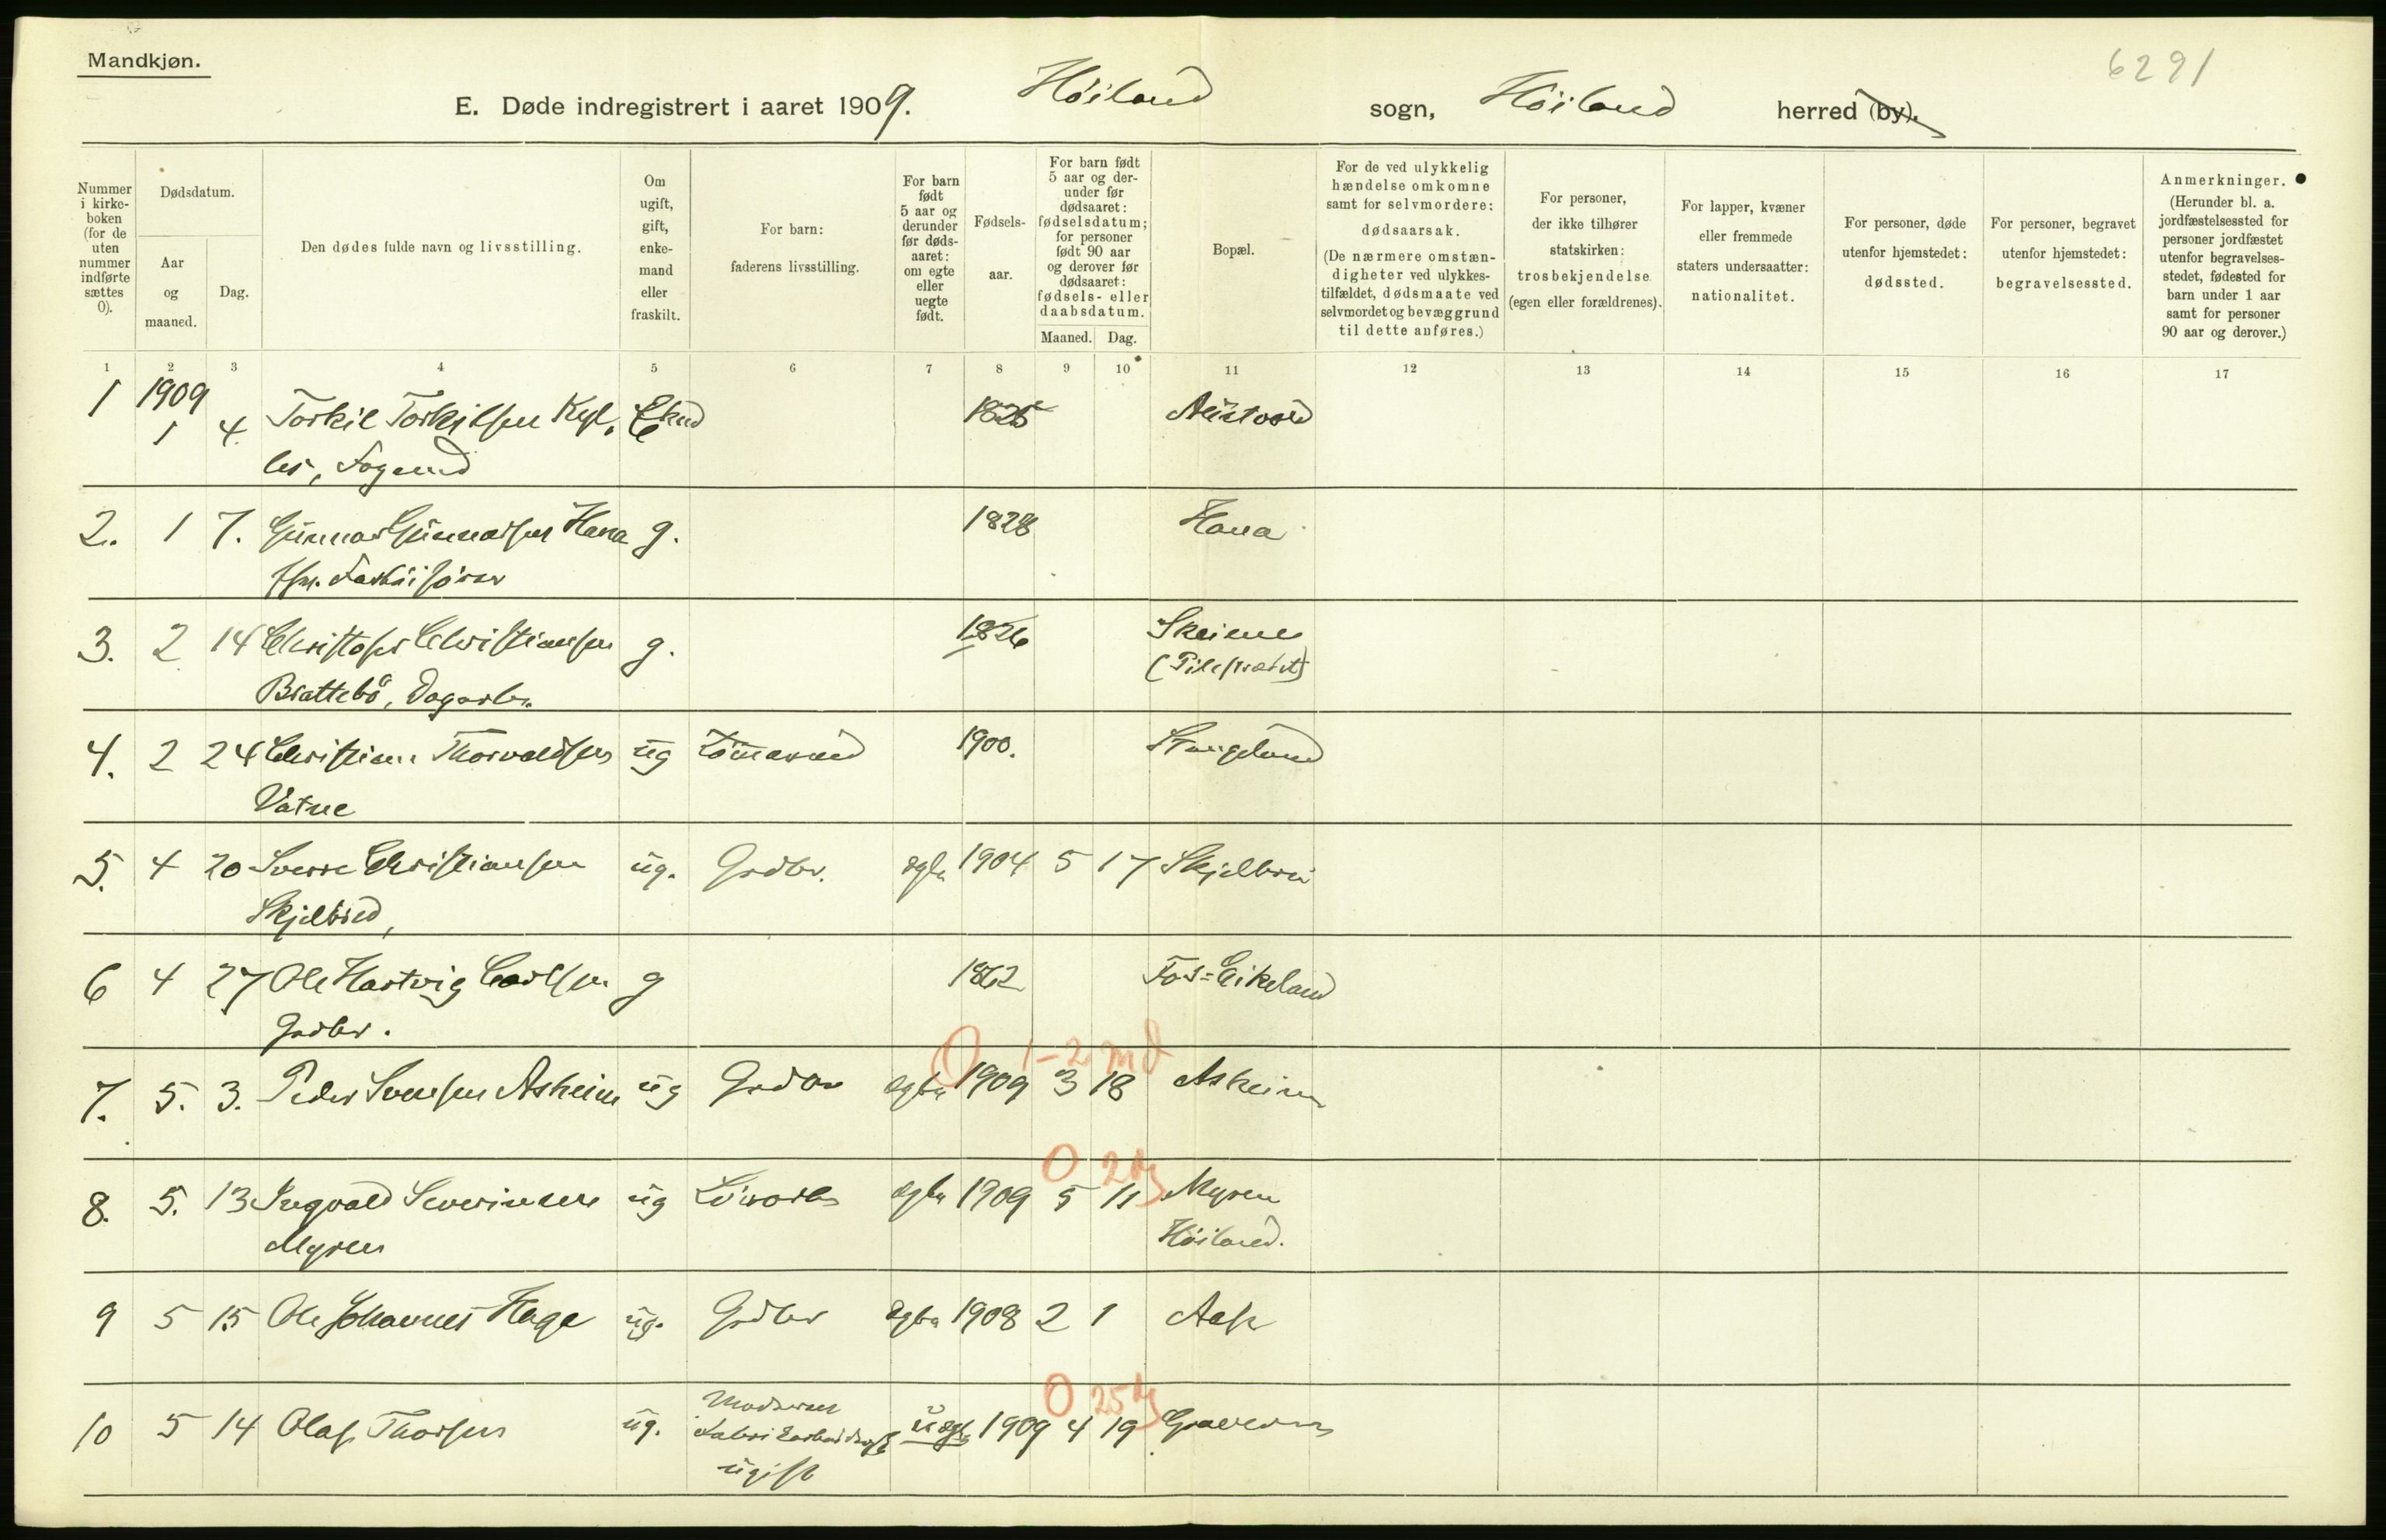 Mandkjøn.
6291
E. Døde indregistrert i aaret 1909. Höiland sogn, Höiland herred (by).
Nummer i kirke-boken (for de uten nummer indførte sættes 0).
Dødsdatum.
Aar og maaned.
Dag.
Den dødes fulde navn og livsstilling.
Om ugift, gift, enke-mand eller fraskilt.
For barn: faderens livsstilling.
For barn født 5 aar og derunder før døds-aaret: om egte eller uegte født.
Fødsels-aar.
For barn født 5 aar og der-under før dødsaaret: fødselsdatum; for personer født 90 aar og derover før dødsaaret: fødsels- eller daabsdatum.
Maaned. Dag.
Bopæl.
For de ved ulykkelig hændelse omkomne samt for selvmordere: dødsaarsak.
(De nærmere omstæn-digheter ved ulykkes-tilfældet, dødsmaate ved selvmordet og bevæggrund til dette anføres.)
For personer, der ikke tilhører statskirken: trosbekjendelse (egen eller forældrenes).
For lapper, kvæner eller fremmede staters undersaatter: nationalitet.
For personer, døde utenfor hjemstedet: dødssted.
For personer, begravet utenfor hjemstedet: begravelsessted.
Anmerkninger.
(Herunder bl. a. jordfæstelsessted for personer jordfæstet utenfor begravelses-stedet, fødested for barn under 1 aar samt for personer 90 aar og derover.)
1 2 3 4 5 6 7 8 9 10 11 12 13 14 15 16 17
1 1909
1 4 Torkil Torkilsen Kyl- Ekmd 1825 Austvold
les,
2. 1 7. Gunnar Gunnarsen Hana g. 1828 Hana
3. 2 14 Christofer Christiansen g. 1826 Skeiene
Brattebö, Dagarb.
4. 2 24 Christian Thorvaldsen ug 1900. Stangeland
Vatne
5. 4 20 Sverre Christiansen ug. Grdbr. egte 1904 5 17 Skjelbrei
Skjelbred,
6 4 27 Ole Hartvig Carlsen g 1862 Fos-Eikeland
Grdbr.
0 1-2 md
7. 5. 3. Peder Svensen Asheim ug Grdbr egte 1909 3 18 Asheim
0 2 dg
8. 5. 13 Ingvald Severinsen ug egte 1909 5 11 Myren
Myren Höiland.
9 5 15 Ole Johannes Hage ug. Grdbr egte 1908 2 1
0 25 dg
Moderen
10 5 14 Olaf Thorsen ug. Fabrikarbeiderske uegte 1909 4 19 Graveren
ugift